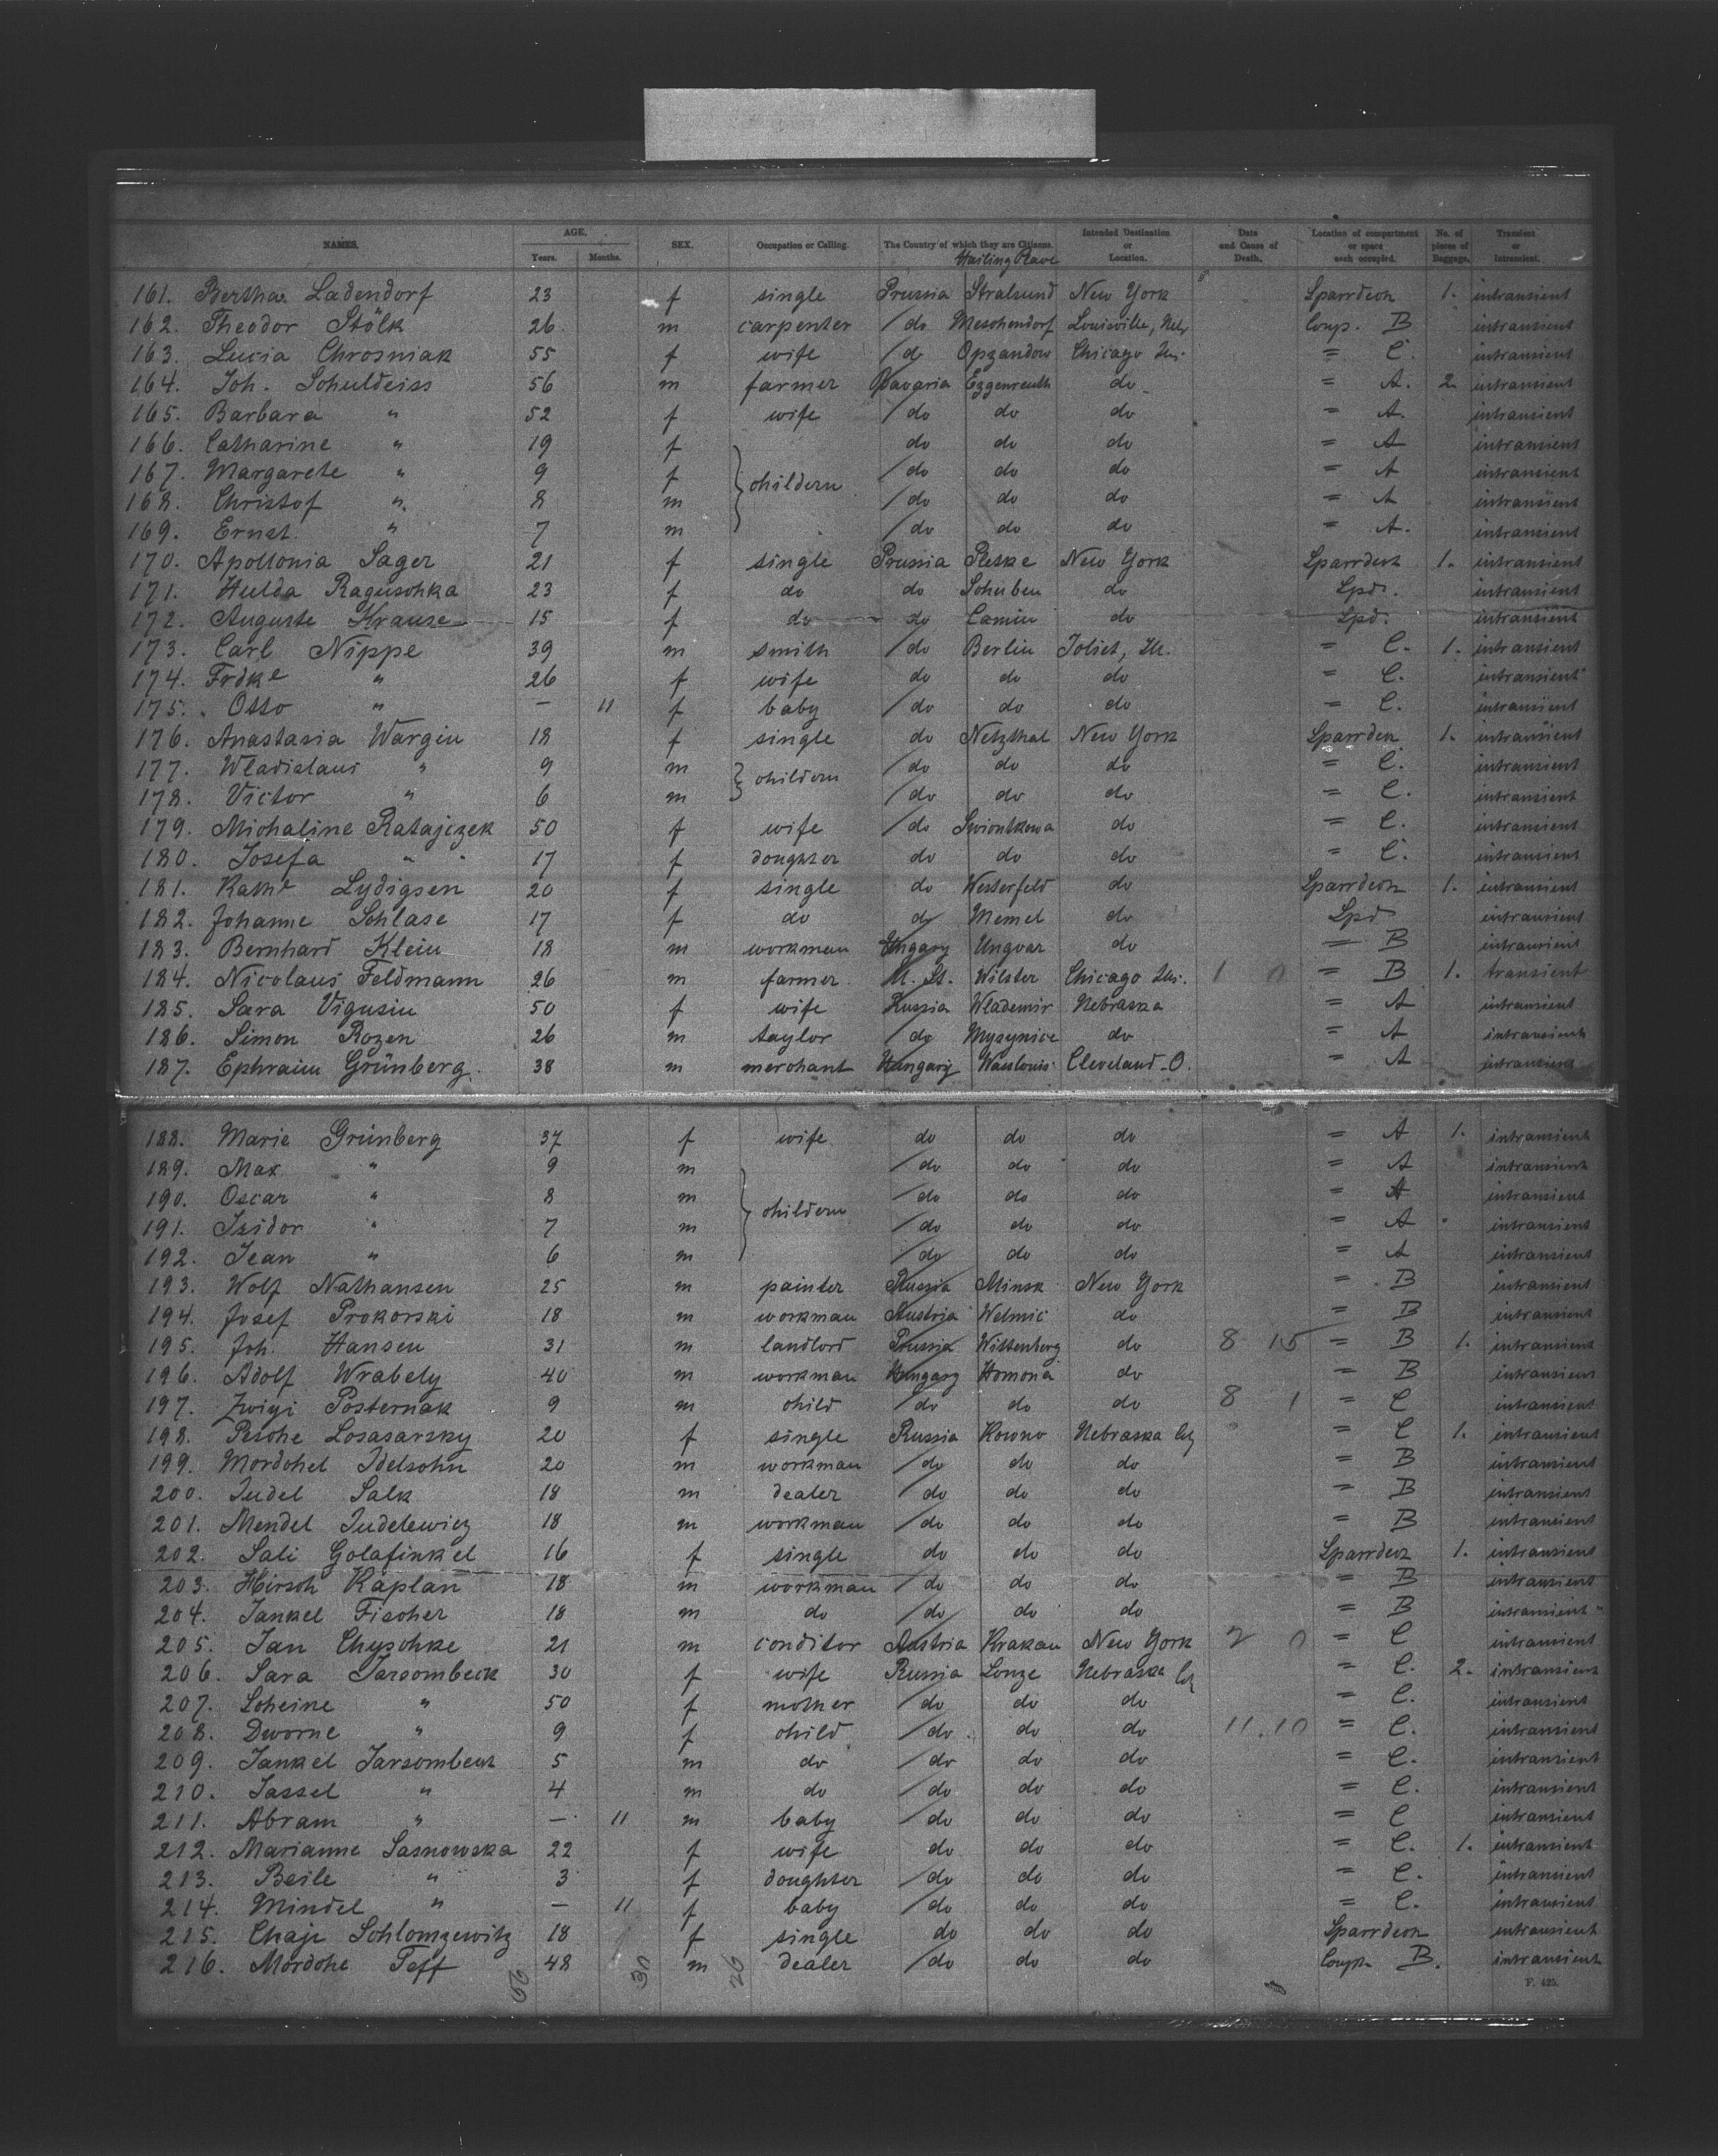 NAMES. AGE. Years. Months. SEX. Occupation or Calling. The Country of which they are Citizens. Hailing Place Intended Destination or Location. Date and Cause of Death. Location of compartment or space each occupied. No. of pieces of Baggage. Transient or Intransient.
161. Bertha Ladendorf 23 f single Prussia Stralsund New York Sparrdeck 1. intransient
162. Theodor Stölk 26 m carpenter do Meschendorf Louisville, Comp. B intransient
163. Lucia Chrosniak 55 f wife do Opzandow Chicago = C. intransient
164. Joh. Schuldeiss 56 m farmer Bavaria Eggenreuth do = A. 2. intransient
165. Barbara " 52 f wife do do do = A. intransient
166. Catharine " 19 f do do do = A intransient
167. Margarete " 9 f childern do do do = A intransient
168. Christof " 8 m do do do = A intransient
169. Ernst " 7 m do do do = A. intransient
170. Apollonia Sager 21 f single Prussia Pleske New York Sparrdeck 1. intransient
171. Hulda Raguschka 23 f do do Schuben do Spd. intransient
172. Auguste Krause 15 f do do Camin do Spd. intransient
173. Carl Nippe 39 m smith do Berlin Joliet, Ill. = C. 1. intransient
174. Frdke " 26 f wife do do do = C. intransient
175. Otto " — 11 f baby do do do = C. intransient
176. Anastasia Wargin 18 f single do Netzthal New York Sparrdeck 1. intransient
177. Wladislaus " 9 m childern do do do = C. intransient
178. Victor " 6 m do do do = C. intransient
179. Michaline Ratajczek 50 f wife do Swiontkowa do = C. intransient
180. Josefa " 17 f doughter do do do = C. intransient
181. Kathe Lydigsen 20 f single do Westerfeld do Sparrdeck 1. intransient
182. Johanne Schlase 17 f do do Memel do Spd intransient
183. Bernhard Klein 18 m workman Hungary Ungvar do = B intransient
184. Nicolaus Feldmann 26 m farmer U. St. Wilster Chicago 1 0 = B 1. transient
185. Sara Vigusin 50 f wife Russia Wlademir Nebraska = A intransient
186. Simon Rozen 26 m taylor do Mysynice do = A intransient
187. Ephraim Grünberg 38 m merchant Hungary Cleveland O. = A intransient
188. Marie Grünberg 37 f wife do do do = A 1. intransient
189. Max " 9 m do do do = A intransient
190. Oscar " 8 m childern do do do = A intransient
191. Isidor " 7 m do do do = A intransient
192. Jean " 6 m do do do = A intransient
193. Wolf Nathansen 25 m painter Russia Minsk New York = B intransient
194. Josef Prokorski 18 m workman Austria Welmic do = B intransient
195. Joh. Hansen 31 m landlord Prussia Wittenberg do 8 15 = B 1. intransient
196. Adolf Wrabely 40 m workman Hungary Homona do = B intransient
197. Zwiyi Posternak 9 m child do do do 8 1 = C intransient
198. Pesche Losasarsky 20 f single Russia Kowno Nebraska Cy = C 1. intransient
199. Mordchel Idelsohn 20 m workman do do do = B intransient
200. Judel Salk 18 m dealer do do do = B intransient
201. Mendel Judelewicz 18 m workman do do do = B intransient
202. Sali Golafinkel 16 f single do do do Sparrdeck 1. intransient
203. Hirsch Kaplan 18 m workman do do do = B intransient
204. Jankel Fischer 18 m do do do do = B intransient
205. Jan Chyschke 21 m conditor Austria Krakau New York 2 0 = C intransient
206. Sara Jarsombeck 30 f wife Russia Lonze Nebraska Cy = C. 2. intransient
207. Scheine " 50 f mother do do do = C. intransient
208. Dworne " 9 f child do do do 11.10 = C. intransient
209. Jankel Jarsombeck 5 m do do do do = C. intransient
210. Jassel " 4 m do do do do = C. intransient
211. Abram " — 11 m baby do do do = C intransient
212. Marianne Sasnowska 22 f wife do do do = C. 1. intransient
213. Beile " 3 f doughter do do do = C. intransient
214. Mindel " — 11 f baby do do do = C. intransient
215. Chaje Schlomzewitz 18 f single do do do Sparrdeck intransient
216. Mordche Teff 48 m dealer do do do Comp. B. intransient
56 30 26
F. 425.